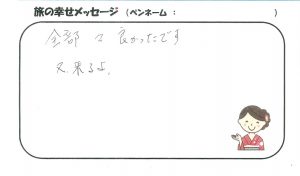 旅の幸せメッセージ （ペンネーム： ）
全部 良かったです
又、来るよ。